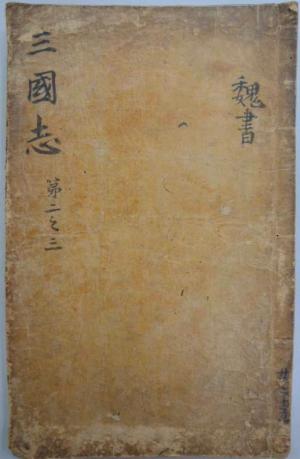 魏書
三國志
第二之三